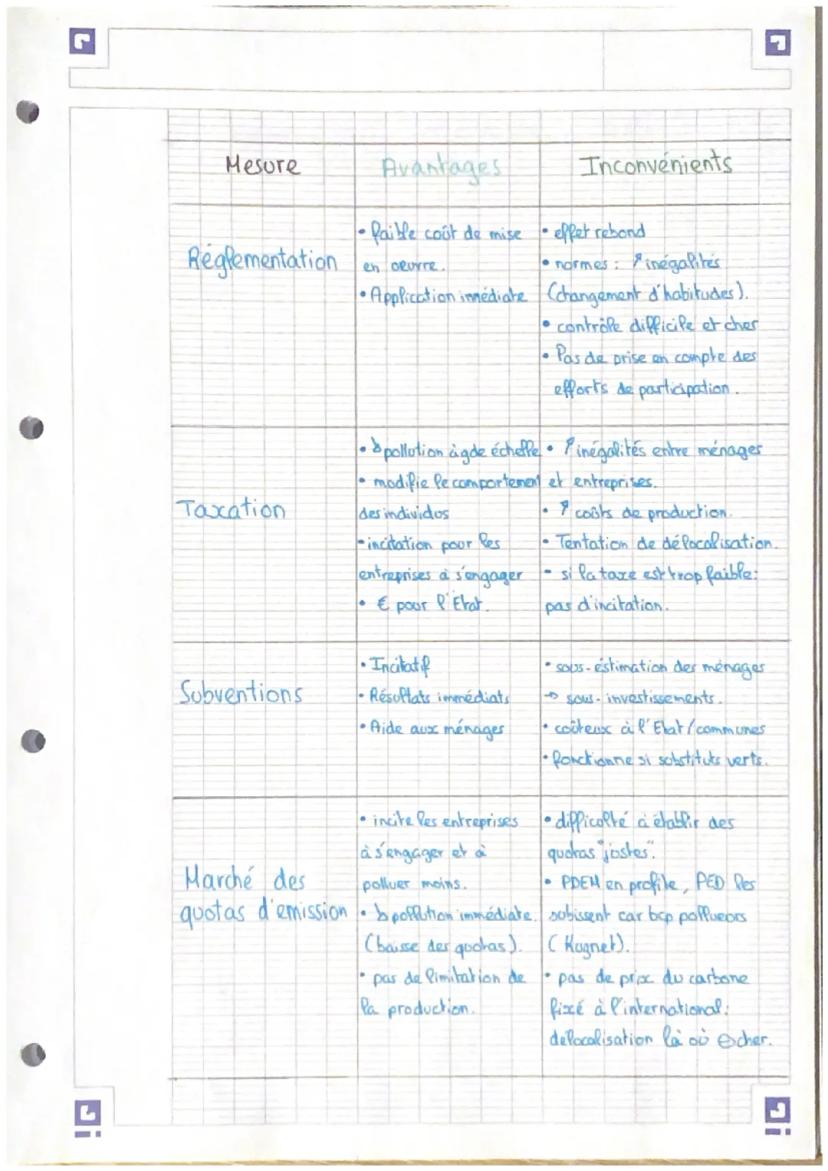 Mesure
Avantages
Inconvénients
Réglementation
• faible coût de mise
en oeuvre.
• Application immédiate
• effet rebond
• normes : ↗ inégalités
(changement d'habitudes).
• contrôle difficile et cher
• Pas de prise en compte des
efforts de participation.
Taxation
• ↘ pollution à gde échelle
• modifie le comportement
des individus
• incitation pour les
entreprises à s'engager
• € pour l'Etat.
• ↗ inégalités entre ménages
et entreprises.
• ↗ coûts de production.
• Tentation de délocalisation.
- si la taxe est trop faible:
pas d'incitation.
Subventions
• Incitatif
• Résultats immédiats
• Aide aux ménages
• sous-éstimation des ménages
→ sous-investissements.
• coûteux à l'Etat/communes
• fonctionne si substituts verts.
Marché des
quotas d'émission
• incite les entreprises
à s'engager et à
polluer moins.
• ↘ pollution immédiate.
(baisse des quotas).
• pas de limitation de
la production.
• difficulté à établir des
quotas "justes".
• PDEM en profite, PED les
subissent car bcp pollueurs
(Kugnet).
• pas de prix du carbone
fixé à l'international:
delocalisation là où ⊖ cher.